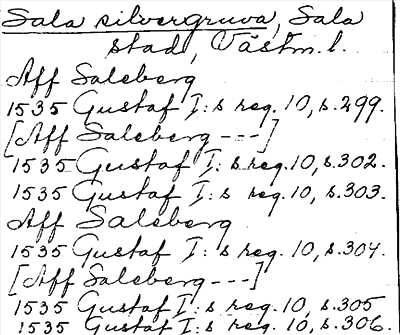 Sala silvergruva, Sala
stad, Västm.l.
Aff Saleberg
1535 Gustaf I:s reg. 10, s.299.
[Aff Saleberg ---]
1535 Gustaf I:s reg. 10, s.302.
1535 Gustaf I:s reg. 10, s.303.
Aff Saleberg
1535 Gustaf I:s reg. 10, s.304.
[Aff Saleberg ---]
1535 Gustaf I:s reg. 10, s.305
1535 Gustaf I:s reg. 10, s.306.